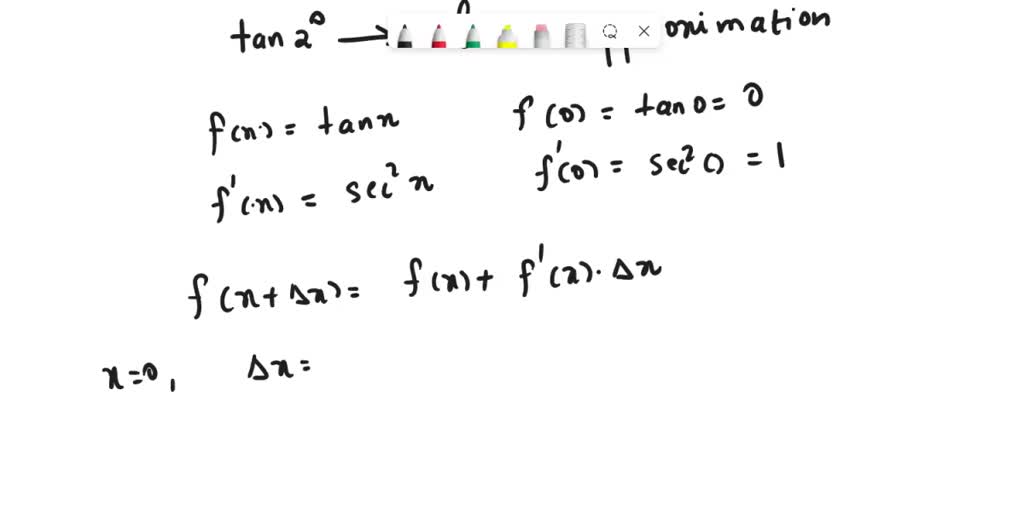 tan 2° →
f(x) = tan x f(0) = tan 0 = 0
f'(x) = sec² x f'(0) = sec² 0 = 1
f(x + Δx) = f(x) + f'(x) · Δx
x = 0, Δx =